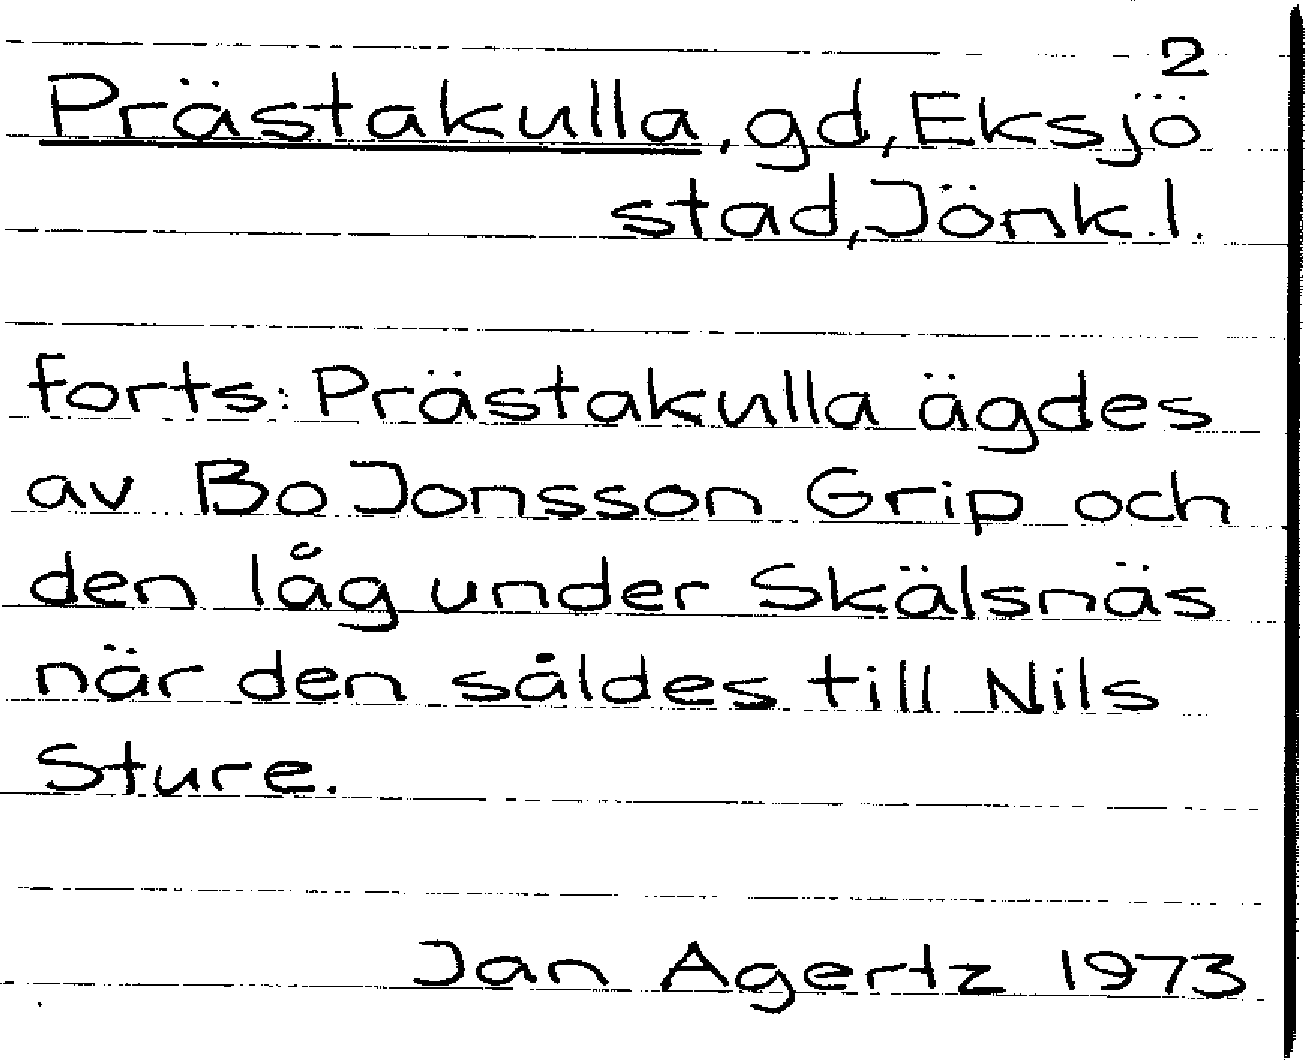 2
Prästakulla, gd, Eksjö
stad, Jönk.l.
forts: Prästakulla ägdes
av Bo Jonsson Grip och
den låg under Skälsnäs
när den såldes till Nils
Sture.
Jan Agertz 1973